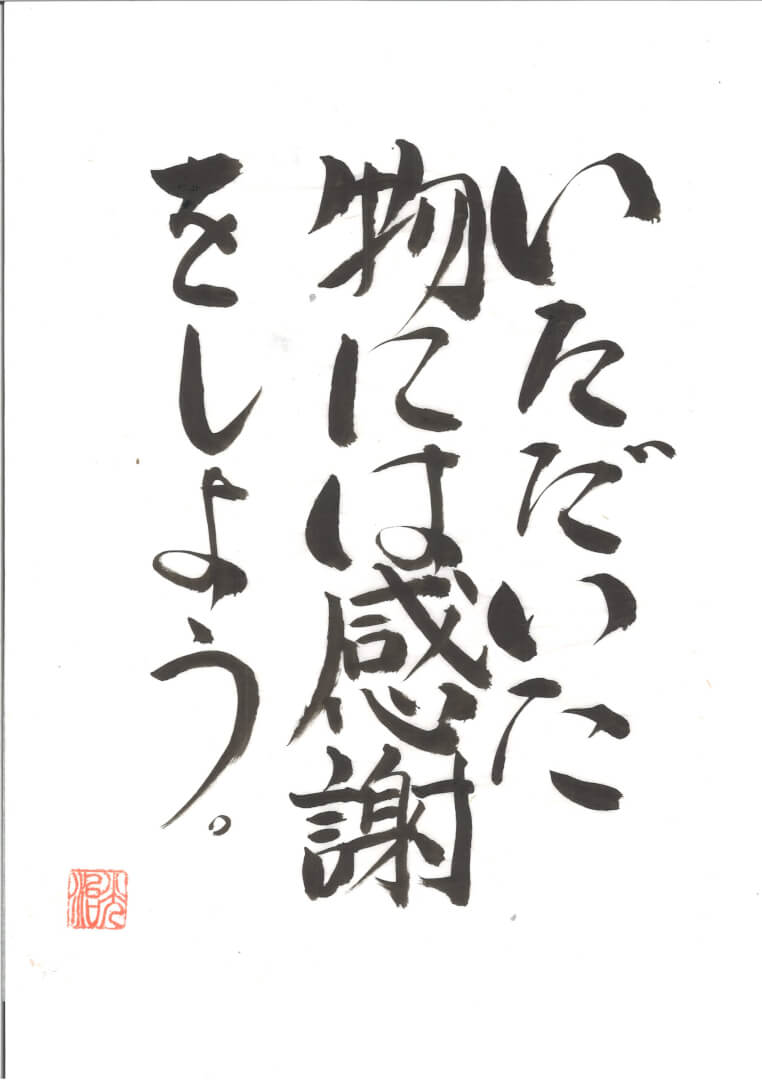 いただいた
物には感謝
をしよう。